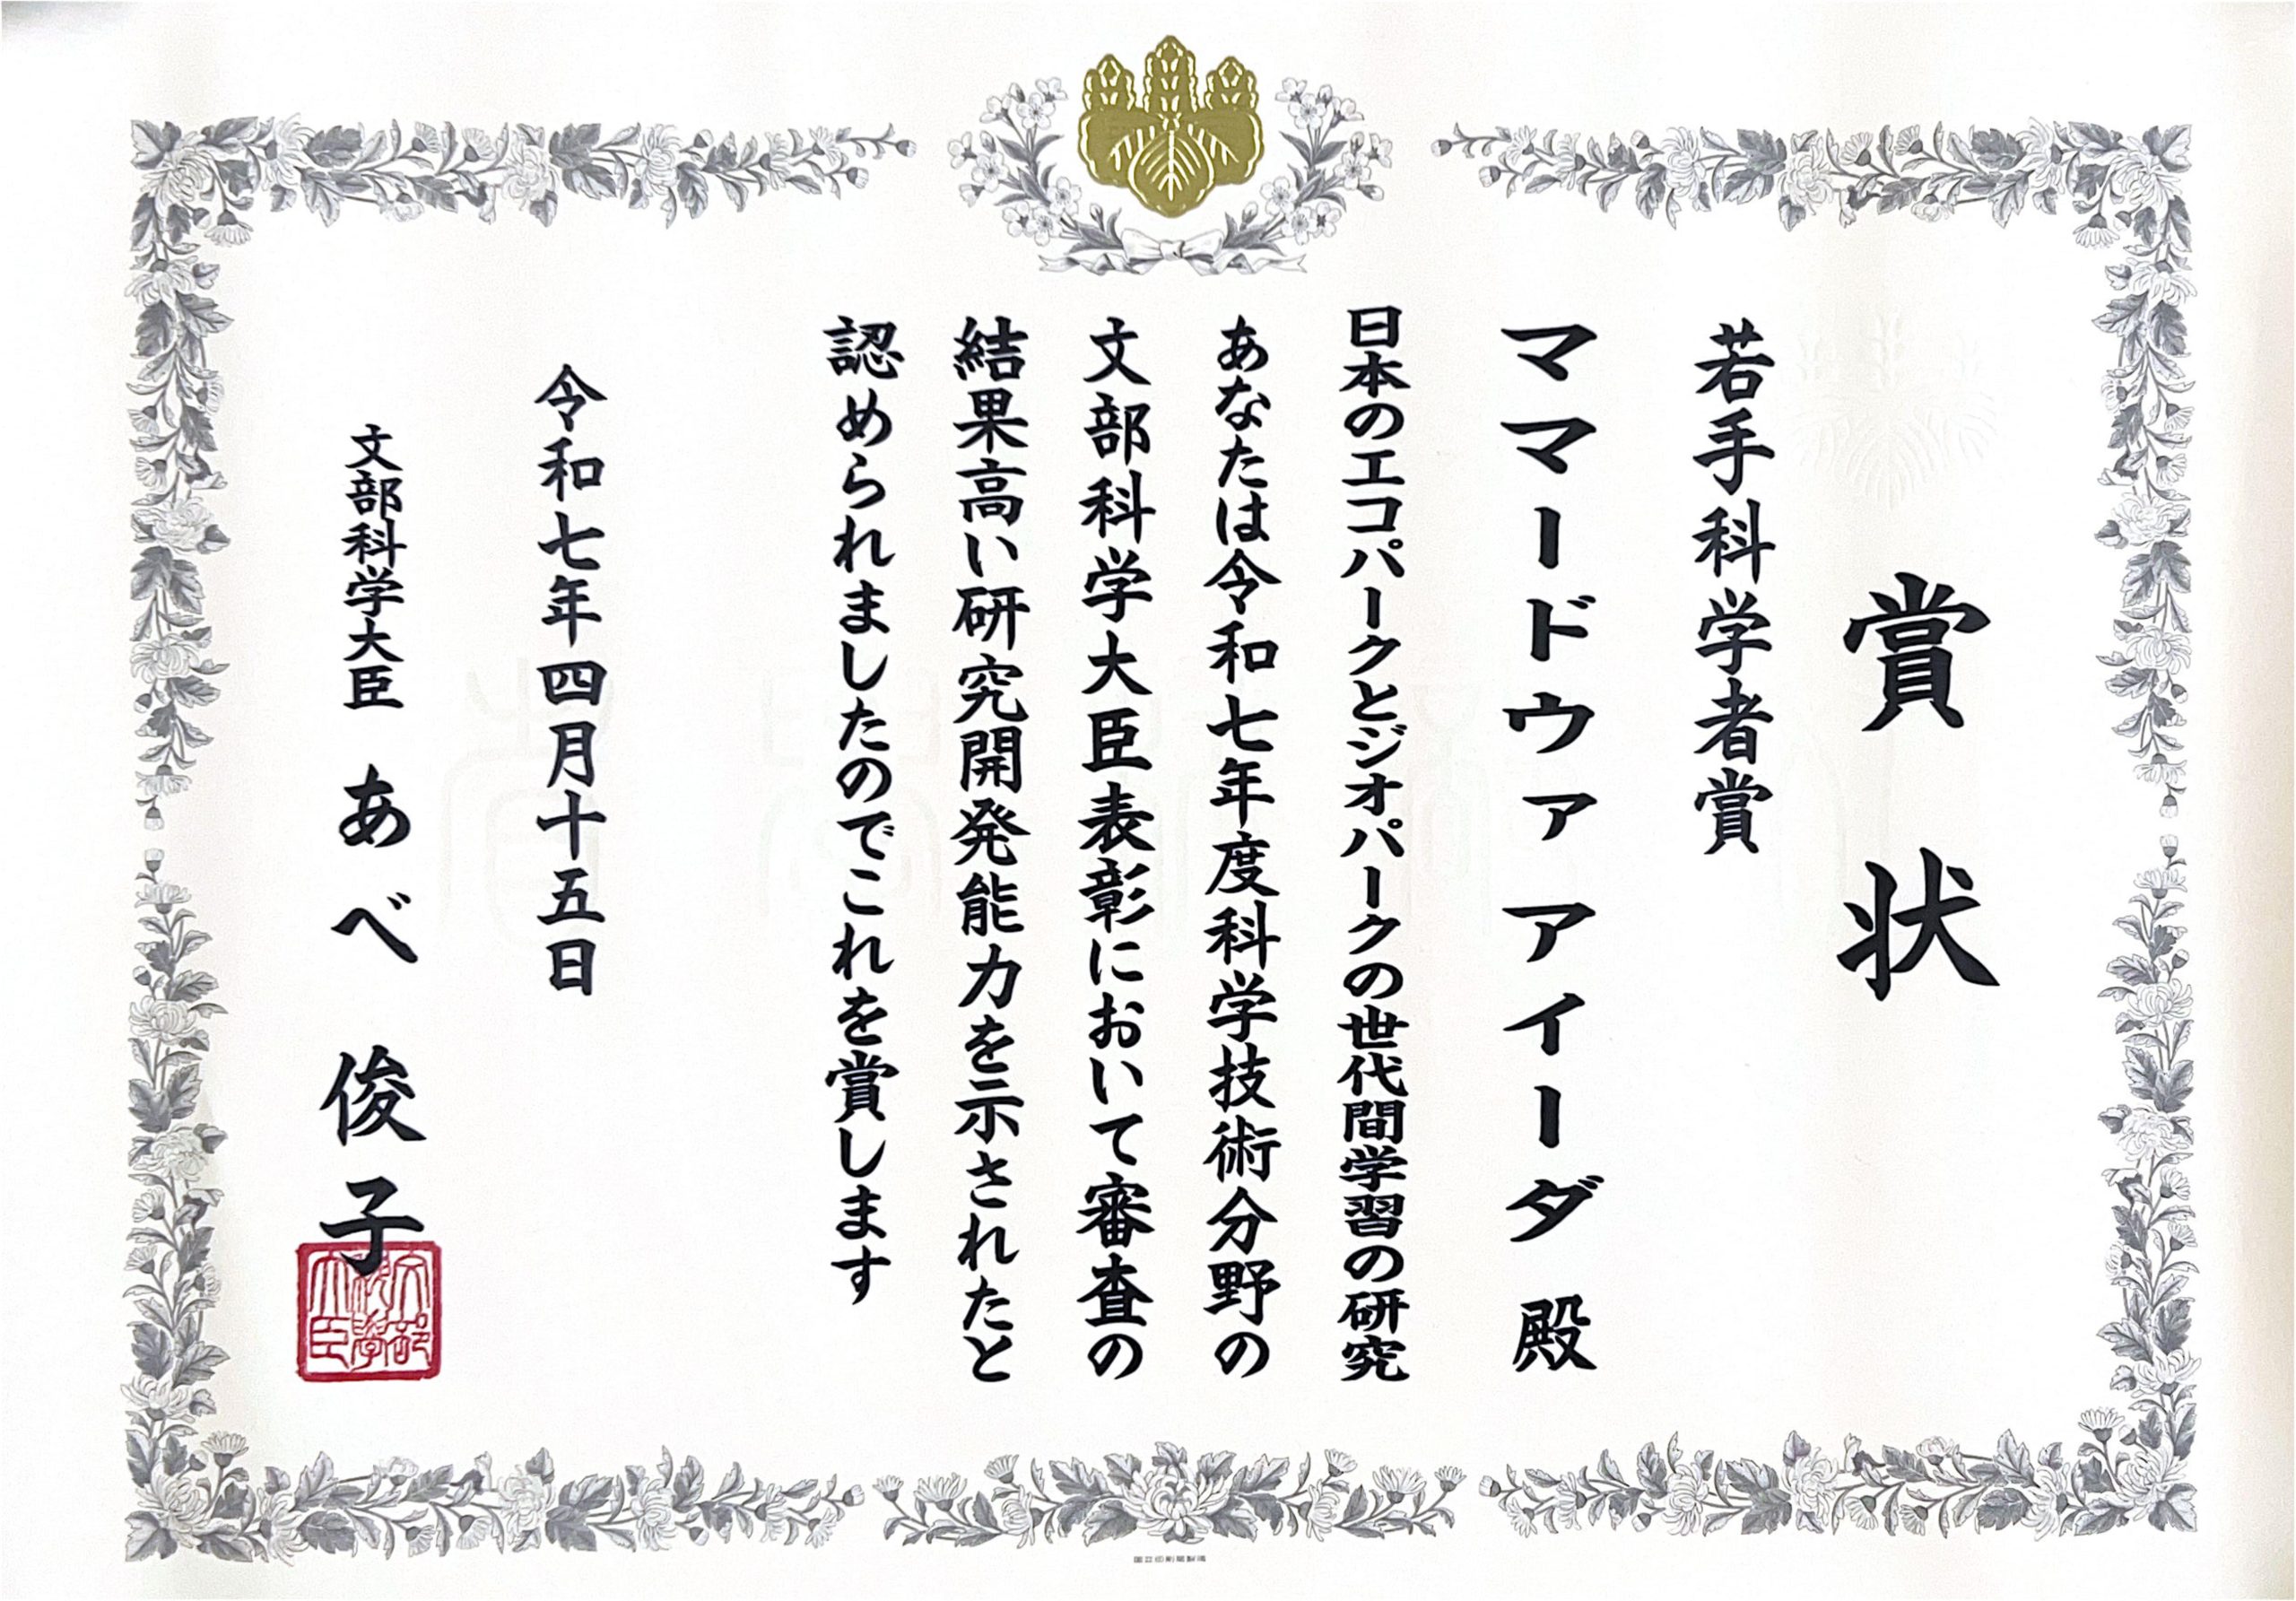 賞状
若手科学者賞
ママードウァアイーダ殿
日本のエコパークとジオパークの世代間学習の研究
あなたは令和七年度科学技術分野の
文部科学大臣表彰において審査の
結果高い研究開発能力を示されたと
認められましたのでこれを賞します
令和七年四月十五日
文部科学大臣 あべ 俊子
文部科学大臣
国立印刷局製造